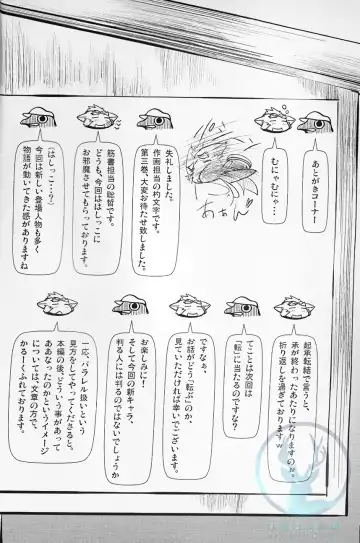 あとがきコーナー
むにゃむにゃ…
わぁん
失礼しました。
作画担当の杓文字です。
第三巻、大変お待たせ致しました。
筋書担当の聡哲です。
どうも、今回ははしっこに
お邪魔させてもらっております。
(はしっこ…?)
今回は新しい登場人物も多く
物語が動いてきた感がありますね
起承転結で言うと、
承が終わったあたりになりますのぉ。
折り返しを過ぎておりますｗ
てことは次回は
「転」に当たるのですな?
ですなぁ、
お話がどう「転ぶ」のか、
見ていただければ幸いでございます。
お楽しみに!
そして今回の新キャラ、
判る人には判るのではないでしょうか
一応、パラレル扱いという
見方をしてやってくださると。
本編の後、どういう事があって
ああなったのかというイメージ
については、文章の方で、
かるーくふれております。